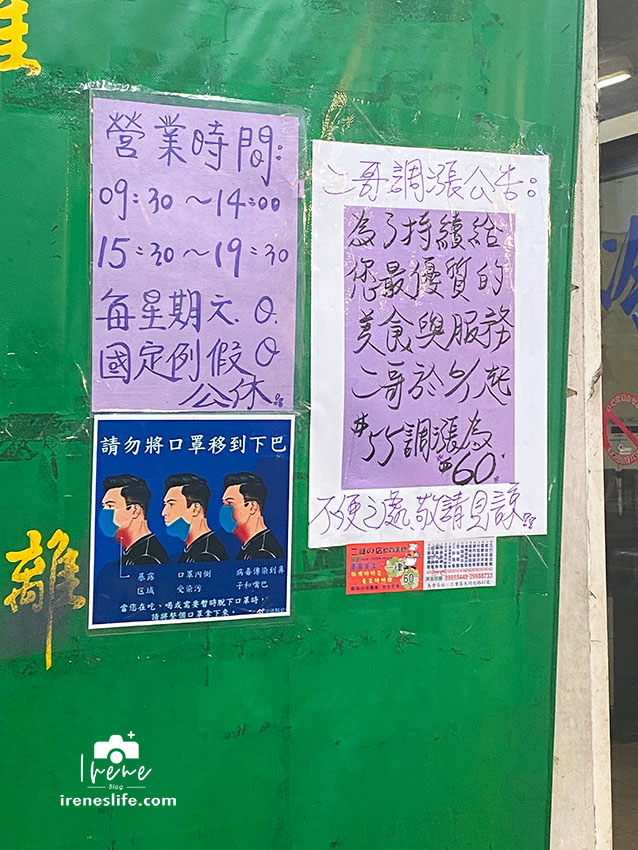 離
營業時間:
09:30～14:00
15:30～19:30
每星期六.日.
國定例假日
公休
二哥調漲公告:
為了持續給
您最優質的
美食與服務
二哥於 起
$55調漲為
$60.
不便之處敬請見諒
請勿將口罩移到下巴
暴露
区域
口罩內側
受染污
病毒傳染到鼻
子和嘴巴
當您在吃、喝或需要暫時脫下口罩時，
請將整個口罩拿下來。
一律
60
Irene
Blog
ireneslife.com